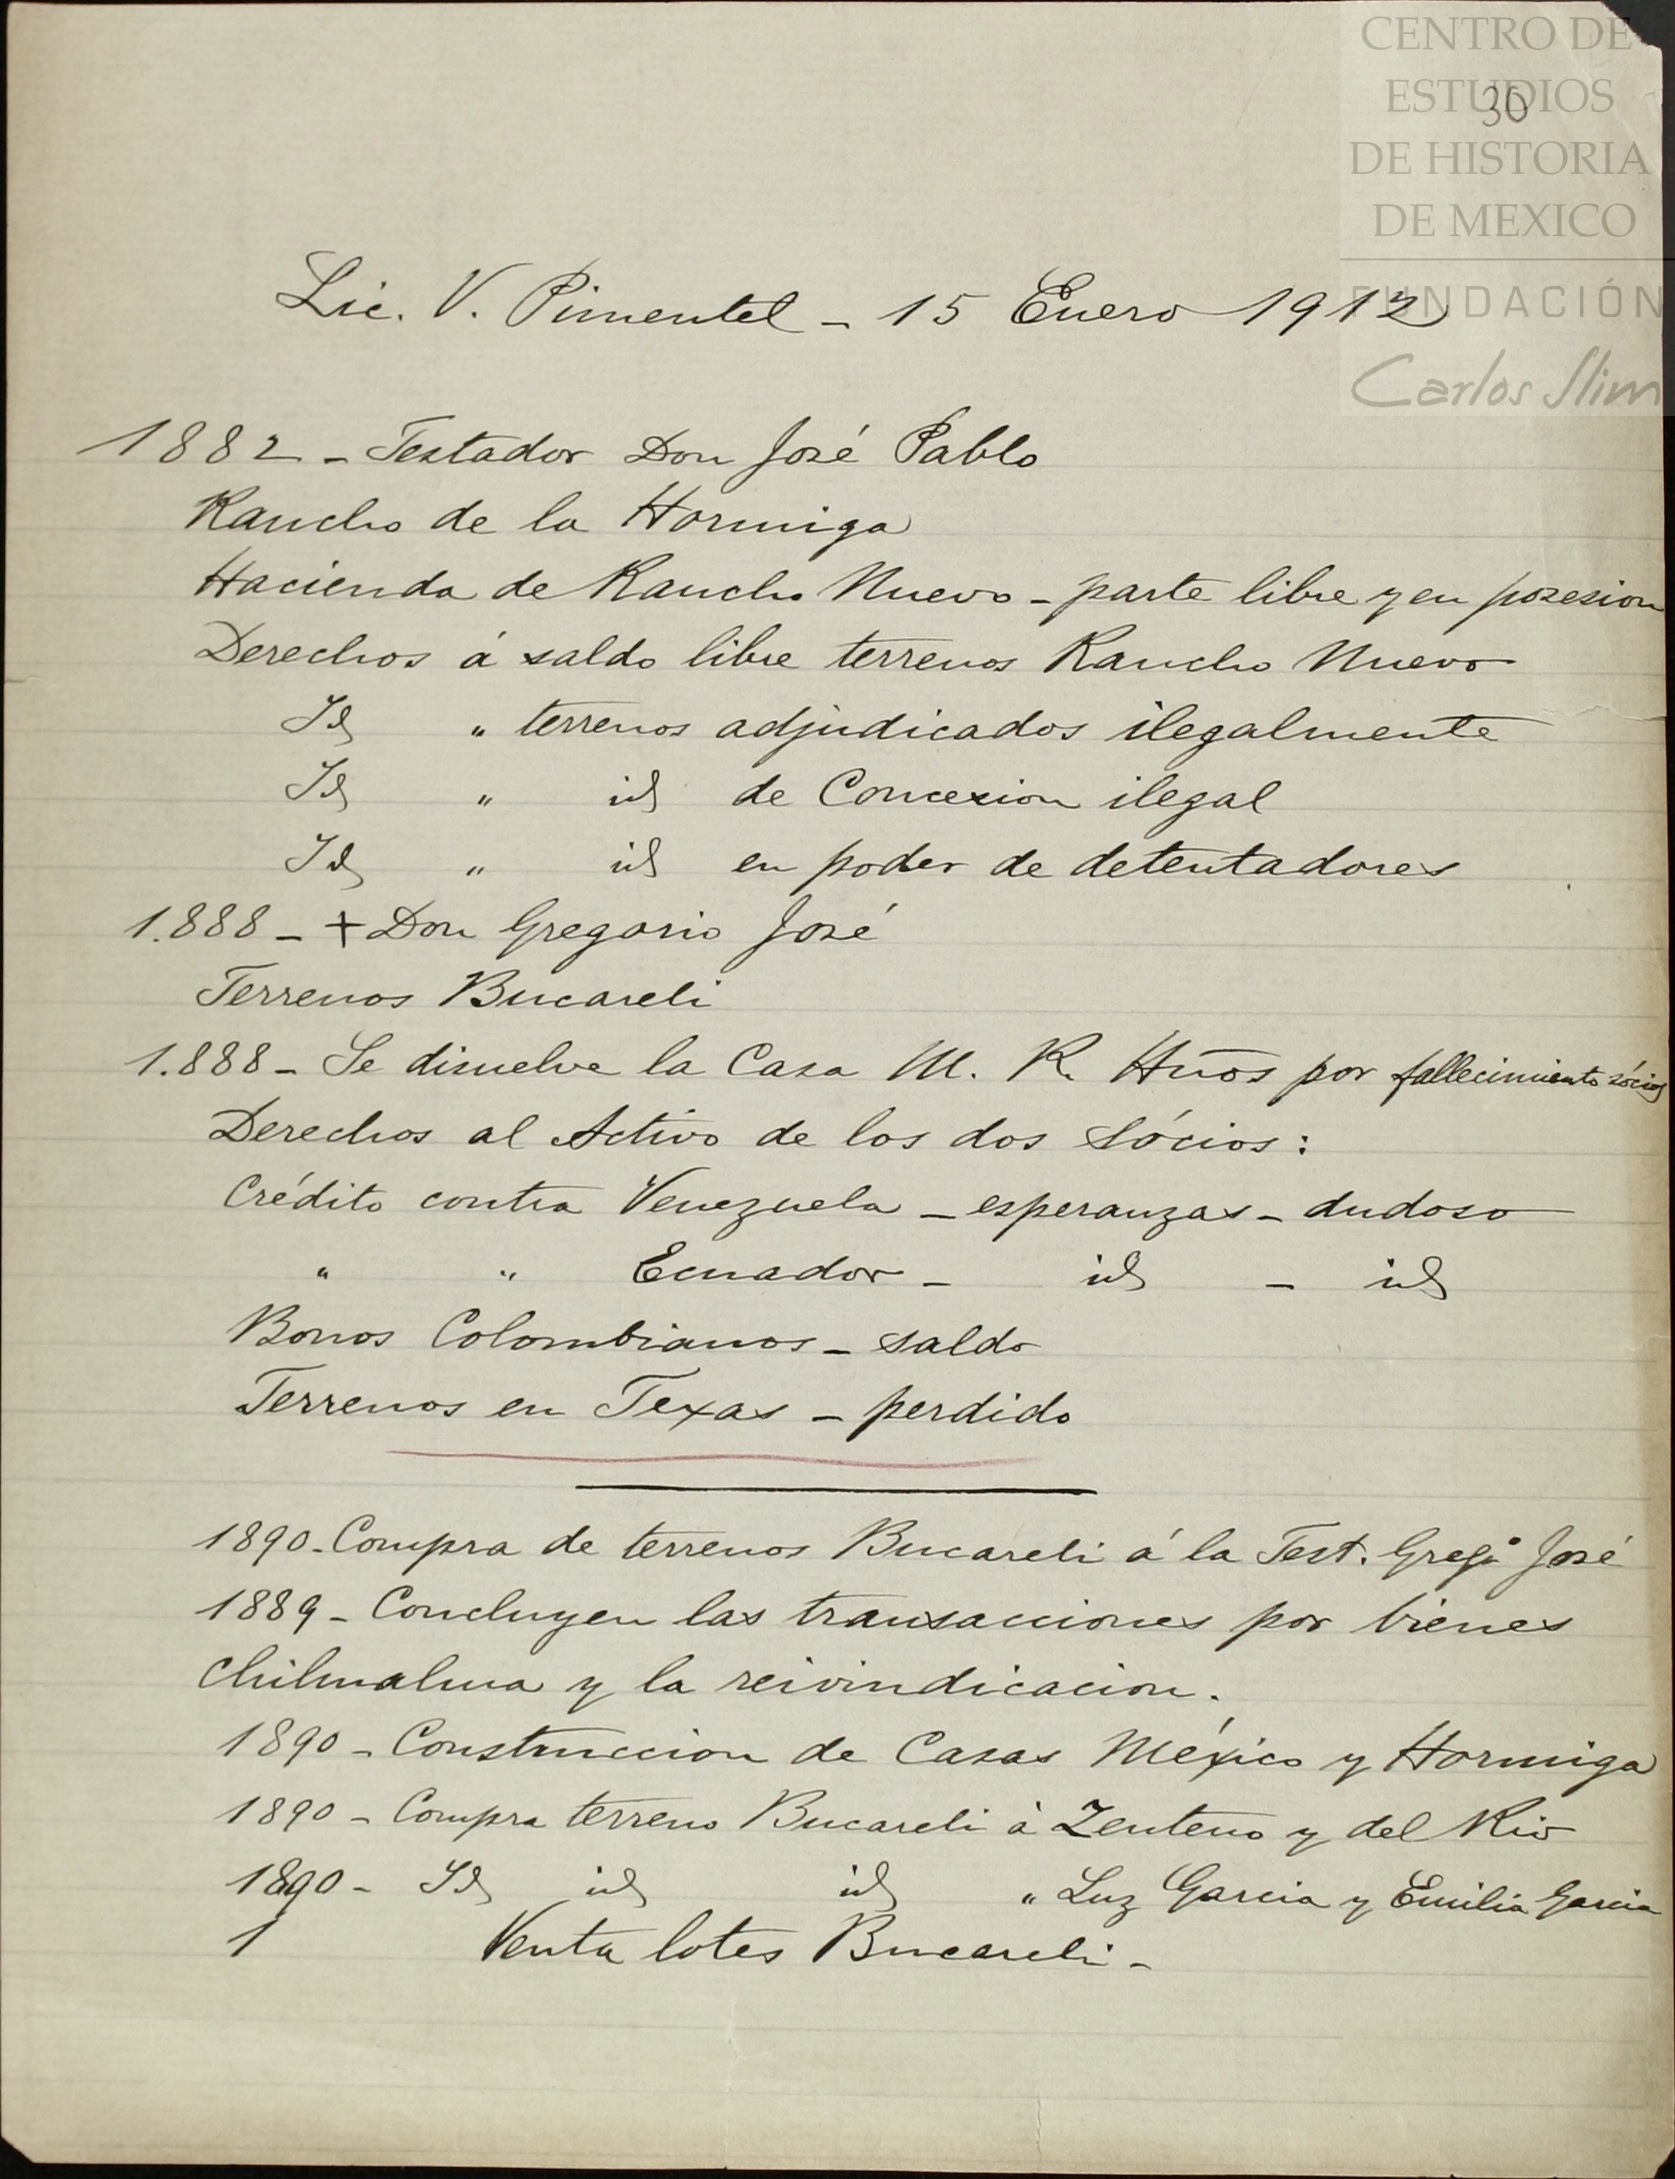 CENTRO DE
ESTUDIOS
30
DE HISTORIA
DE MEXICO
FUNDACIÓN
Carlos Slim
Lic. V. Pimentel - 15 Enero 1912
1882 - Testador Don José Pablo
Rancho de la Hormiga
Hacienda de Rancho Nuevo - parte libre y en posesion
Derechos á saldo libre terrenos Rancho Nuevo
Id " terrenos adjudicados ilegalmente
Id " id de Concesion ilegal
Id " id en poder de detentadores
1.888 - + Don Gregorio José
Terrenos Bucareli
1.888 - Se disuelve la Casa M. R. Hnos por fallecimiento sócios
Derechos al Activo de los dos sócios:
Crédito contra Venezuela - esperanzas - dudoso
" " Ecuador - id - id
Bonos Colombianos - saldo
Terrenos en Texas - perdido
1890 - Compra de terrenos Bucareli á la Test. Gregº José
1889 - Concluyen las transacciones por bienes
Chilmalma y la reivindicacion.
1890 - Construccion de Casas México y Hormiga
1890 - Compra terreno Bucareli à Zenteno y del Rio
1890 - Id id id " Luz Garcia y Emilia Garcia
1 Venta lotes Bucareli -